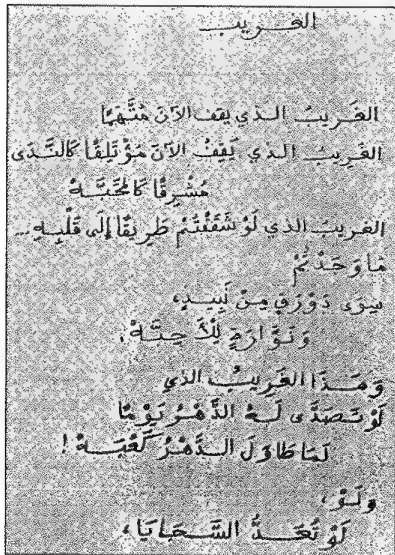 الغريب
الغَريبُ الذي يقف الآنَ مُتَّهَمًا
الغَريبُ الذي يَقِفُ الآنَ مُؤْتَلِقًا كالنَّدَى
مُشْرِقًا كَالمَحَبَّهْ
الغريبُ الذي لَوْ شَقَقْتُمْ طَرِيقًا إلَى قَلْبِهِ ...
مَا وَجَدْتُمْ
سِوَى دَوْرَقٍ مِنْ نَبِيذٍ،
وَنَوَّارَةٍ لِلْأَحِبَّهْ،
وَهَذَا الغَرِيبُ الذي
لَوْ تَصَدَّى لَهُ الدَّهْرُ يَوْمًا
لَمَا طَاوَلَ الدَّهْرُ كَعْبَهْ !
وَلَوْ،
لَوْ تُعَدُّ السَّجَايَا،